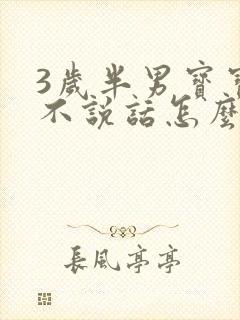 3歲半男寶寶
不說話怎麼
長風亭亭